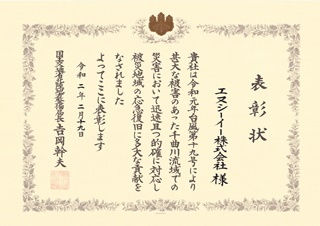 表彰状
エヌシーイー株式会社 様
貴社は令和元年台風第十九号により
甚大な被害のあった千曲川流域での
災害において迅速且つ的確に対応し
被災地域の応急復旧に多大な貢献を
なされました
よってここに表彰します
令和二年二月十九日
国土交通省北陸地方整備局長 吉岡幹夫